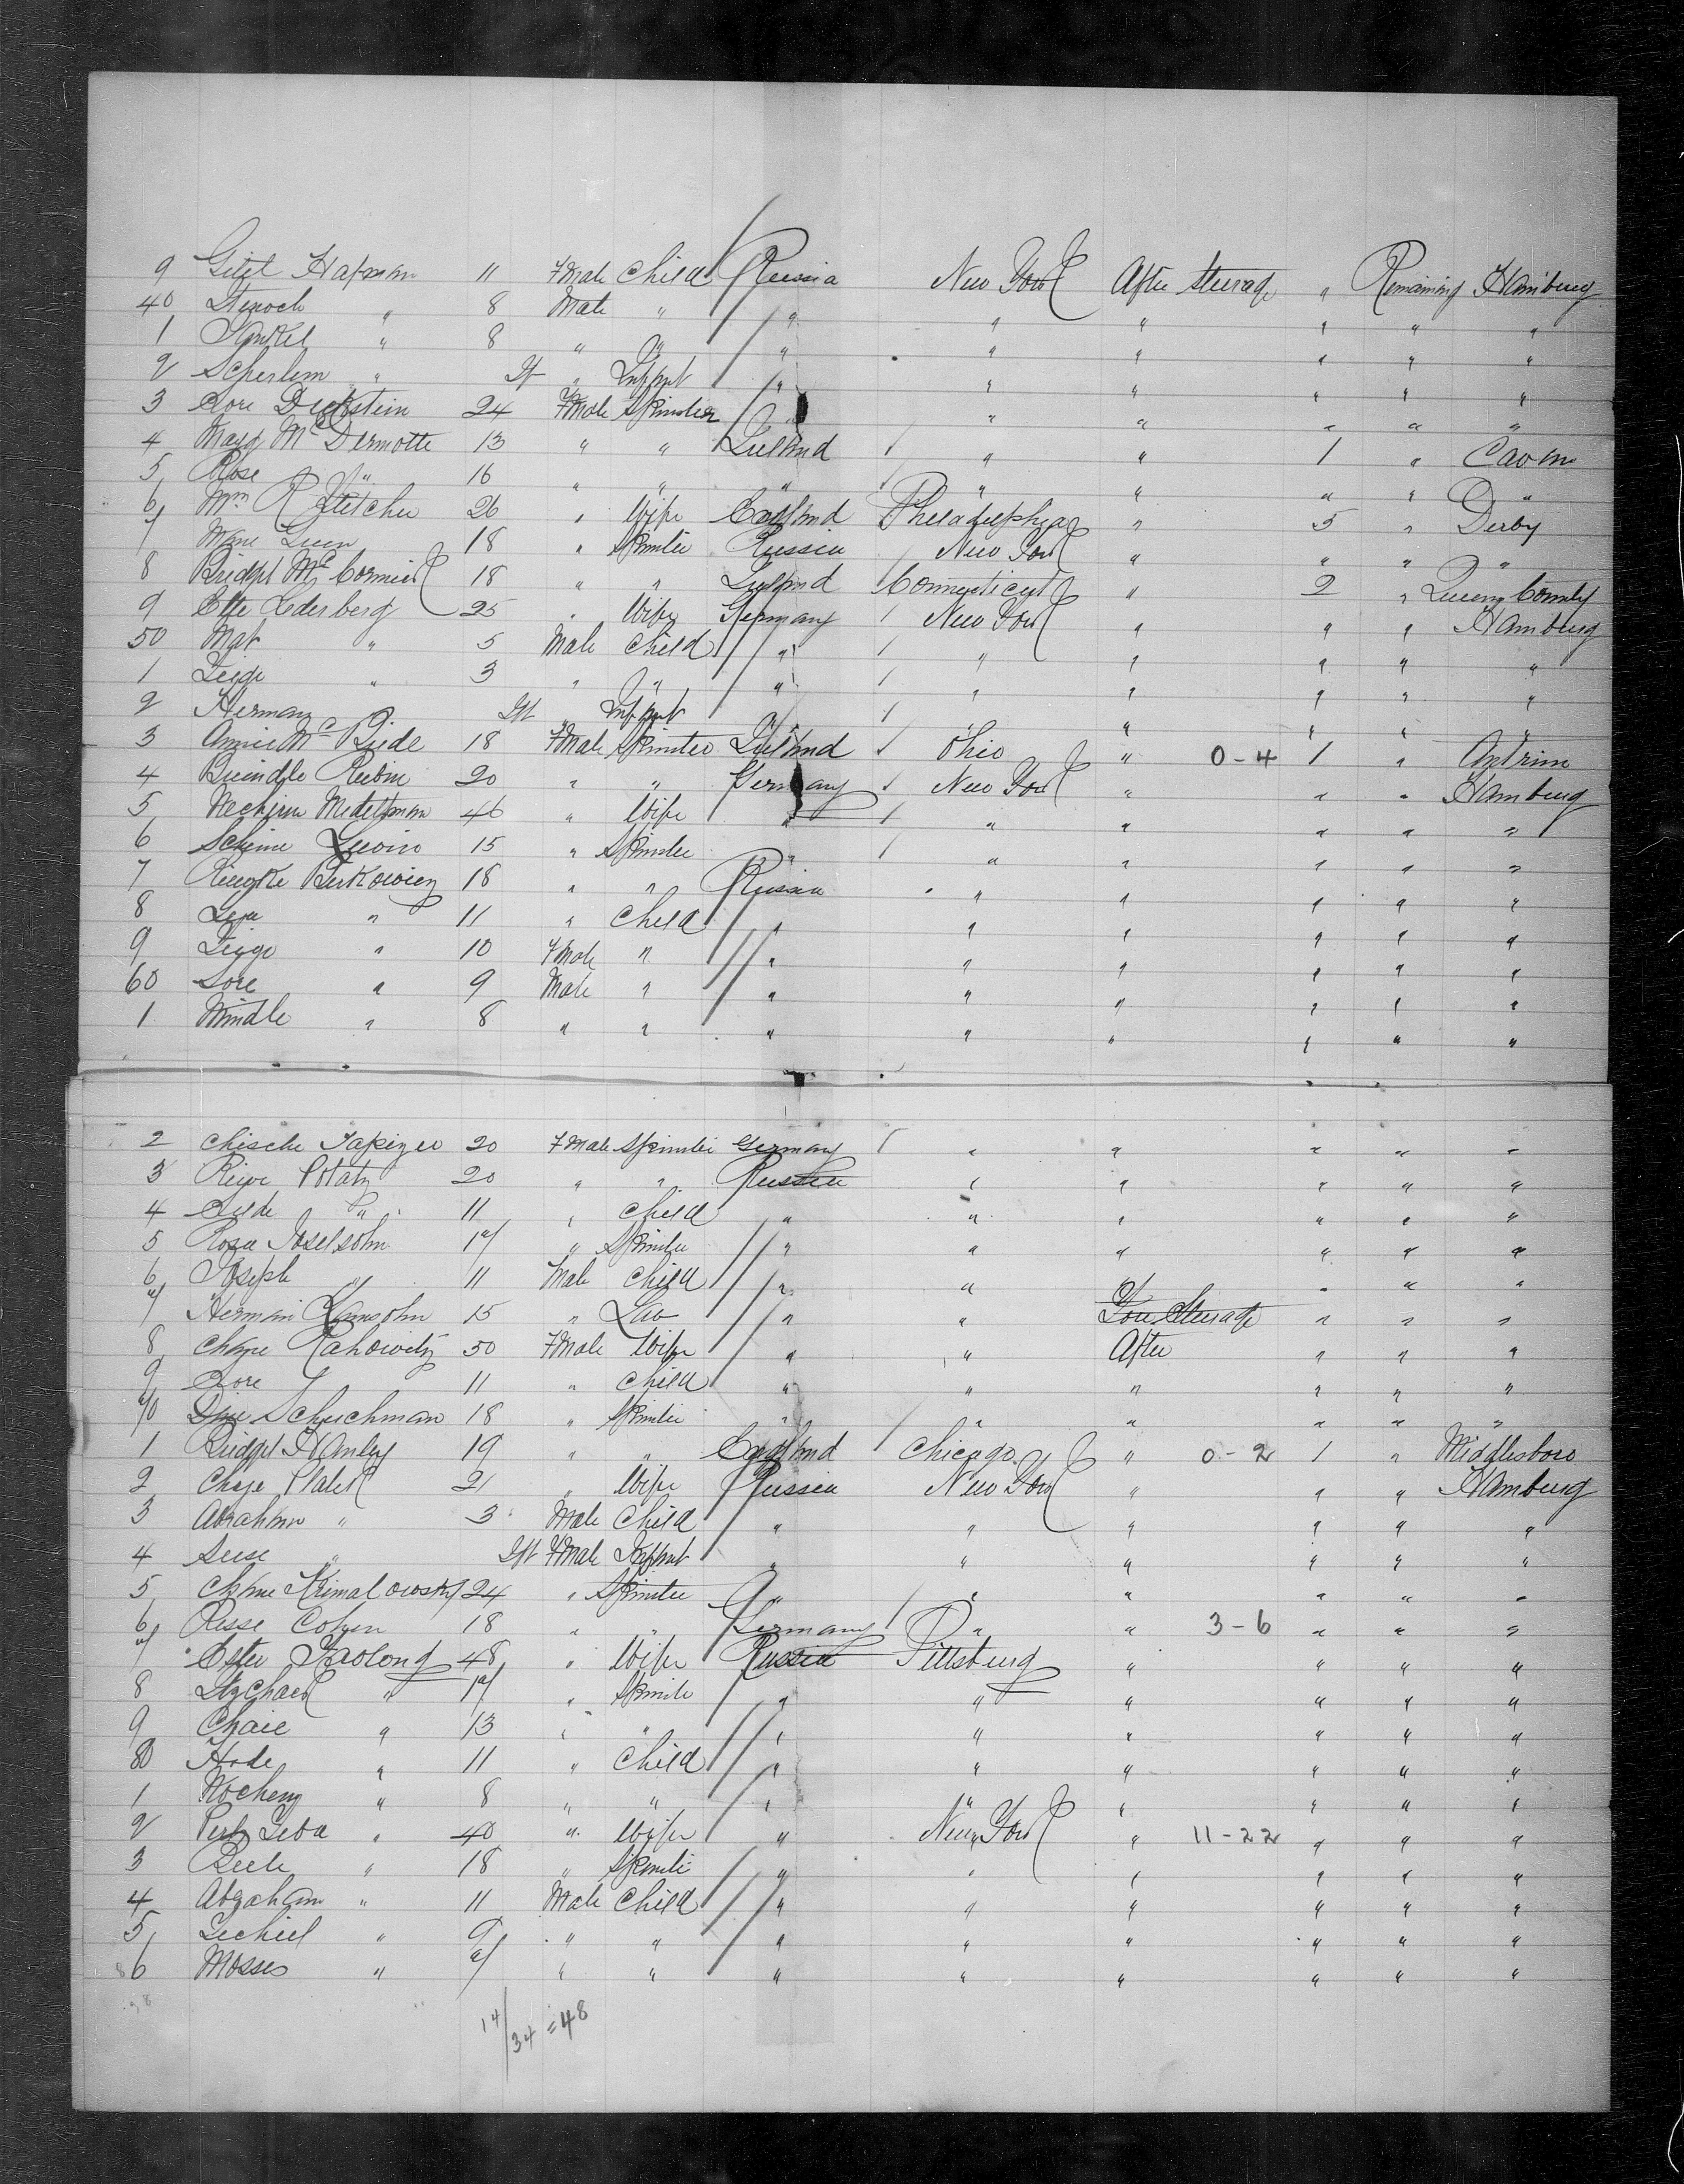 9 Gitel Hafman 11 Fmale Child Russia New York After Steerage " Remaining Hamburg
40 Henoch " 8 Male " " " " " " "
1 Jankel " 8 " " " " " " " "
2 Scherlem " Inft " Infant " " " " " "
3 Sore Dickstein 24 Fmale Spinster " " " " " "
4 Mary McDermotte 13 " " Ireland " " 1 " Cavan
5 Rose " 16 " " " " " " " "
6 Mrs R Fletcher 26 " Wife England Philadelphia " 5 " Derby
7 18 " Spinster Russia New York " " " "
8 Bridget McCormick 18 " " Ireland Connecticut " 2 " Queens County
9 Ette Lederberg 25 " Wife Germany New York " " " Hamburg
50 " 5 Male Child " " " " " "
1 Feige " 3 " " " " " " " "
2 Herman Inft " Infant " " " " "
3 Annie McBride 18 Fmale Spinster Ireland Ohio " 0-4 1 " Antrim
4 Breindle Rubin 20 " " Germany New York " " " Hamburg
5 Mechirne Midelman 46 " Wife " " " " " "
6 Scheine Lewin 15 " Spinster " " " " " "
7 Berkowicz 18 " " Russia " " " " "
8 Leja " 11 " Child " " " " " "
9 Feige " 10 Fmale " " " " " " "
60 Sore " 9 Male " " " " " " "
1 Mindle " 8 " " " " " " " "
2 Chische 20 Fmale Spinster Germany " " " " "
3 Riwe Plotatz 20 " " Russia " " " " "
4 " 11 " Child " " " " " "
5 Rosa Joselsohn 17 " Spinster " " " " " "
6 Joseph " 11 Male Child " " " " "
7 Herman 15 " Lab " " Fore Steerage " " "
8 Chaje Rahowitz 50 Fmale Wife " " After " " "
9 Sore " 11 " Child " " " " " "
70 Schuchman 18 " Spinster " " " " " "
1 Bridget Hanley 19 " " England Chicago " 0-2 1 " Middlesboro
2 Chaje Platek 21 " Wife Russia New York " " " Hamburg
3 Abraham " 3 Male Child " " " " " "
4 " Inft Fmale Infant " " " " " "
5 24 " Spinster " " " " " "
6 Resse Cohen 18 " " Germany " " 3-6 " " "
7 Ester 48 " Wife Russia Pittsburg " " " "
8 " 17 " Spinster " " " " " "
9 Chaie " 13 " " " " " " " "
80 Hode " 11 " Child " " " " " "
1 Nocheny " 8 " " " " " " " "
2 Perl Leba " 40 " Wife " New York " 11-22 " " "
3 Beile " 18 " Spinster " " " " " "
4 Abraham " 11 Male Child " " " " " "
5 Jechiel " 9 " " " " " " " "
86 Mosses " 7 " " " " " " " "
14/34 = 48